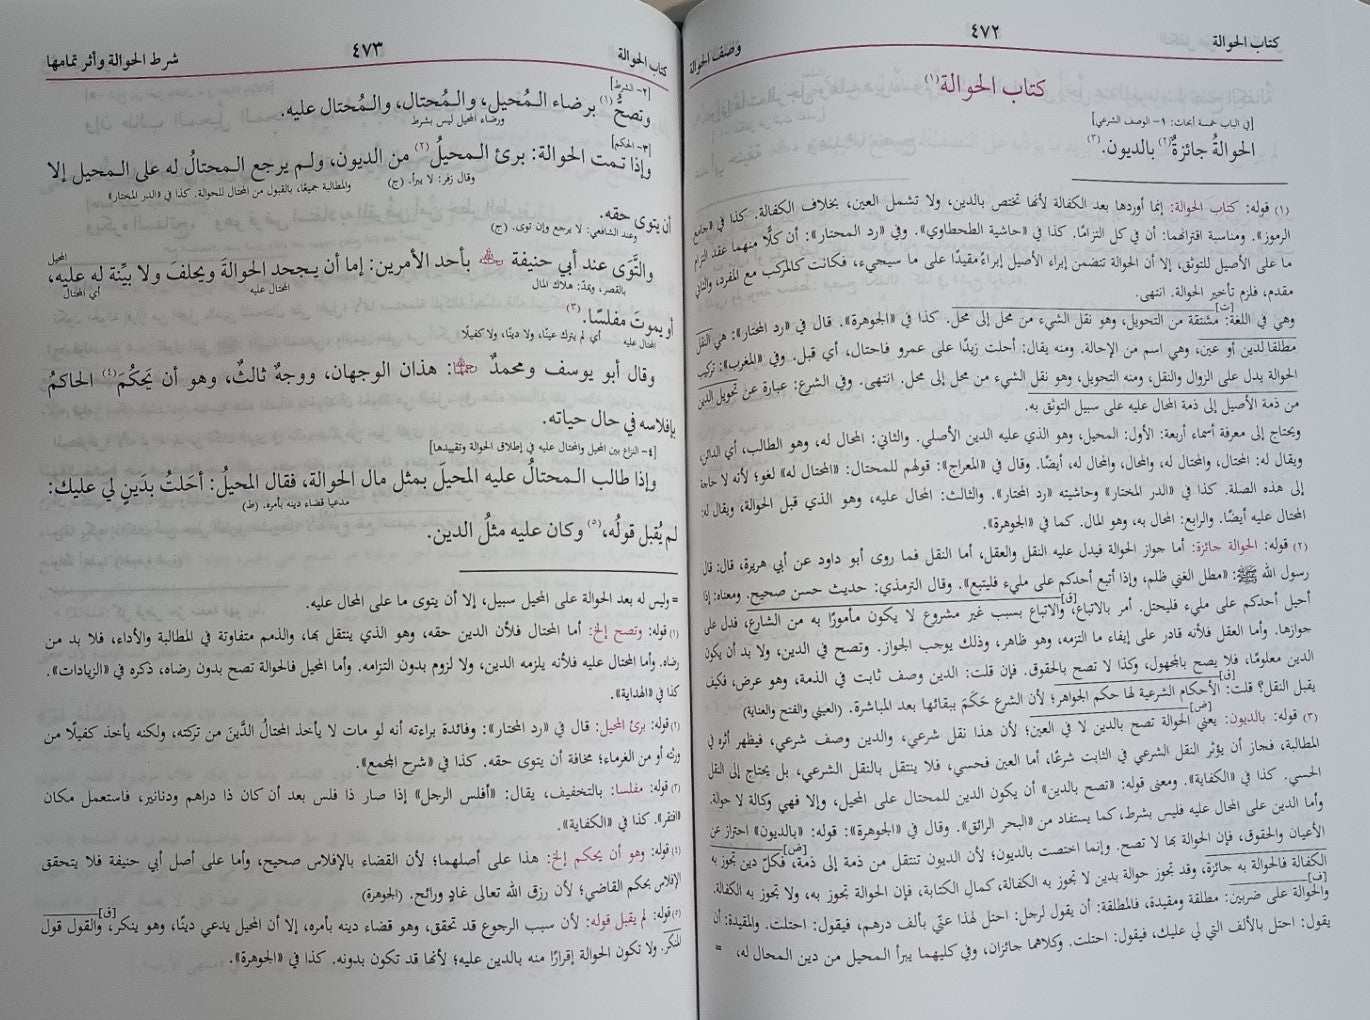 كتاب الحوالة
٤٧٢
وصف الحوالة
كتاب الحوالة(١)
[في الباب خمسة أبحاث: ١- الوصف الشرعي]
الحوالةُ جائزةٌ(٢) بالديون.(٣)
(١) قوله: كتاب الحوالة: إنما أوردها بعد الكفالة لأنها تختص بالدين، ولا تشمل العين، بخلاف الكفالة. كذا في «جامع
الرموز». ومناسبة اقترانهما: أن في كل التزامًا. كذا في «حاشية الطحطاوي». وفي «رد المحتار»: أن كلًّا منهما عقد التزام
ما على الأصيل للتوثق، إلا أن الحوالة تتضمن إبراء الأصيل إبراءً مقيدًا على ما سيجيء، فكانت كالمركب مع المفرد، والثاني
مقدم، فلزم تأخير الحوالة. انتهى.
وهي في اللغة:[ت] مشتقة من التحويل، وهو نقل الشيء من محل إلى محل. كذا في «الجوهرة». قال في «رد المحتار»: هي النقل
مطلقا لدين أو عين، وهي اسم من الإحالة. ومنه يقال: أحلت زيدًا على عمرو فاحتال، أي قبل. وفي «المغرب»: تركيب
الحوالة يدل على الزوال والنقل، ومنه التحويل، وهو نقل الشيء من محل إلى محل. انتهى. وفي الشرع: عبارة عن تحويل الدين
من ذمة الأصيل إلى ذمة المحال عليه على سبيل التوثق به.
ويحتاج إلى معرفة أسماء أربعة: الأول: المحيل، وهو الذي عليه الدين الأصلي. والثاني: المحال له، وهو الطالب، أي الدائن،
ويقال له: المحتال، والمحتال له، والمحال، والمحال له، أيضًا. وقال في «المعراج»: قولهم للمحتال: «المحتال له» لغو؛ لأنه لا حاجة
إلى هذه الصلة. كذا في «الدر المختار» وحاشيته «رد المحتار». والثالث: المحال عليه، وهو الذي قبل الحوالة، ويقال له:
المحتال عليه أيضًا. والرابع: المحال به، وهو المال. كما في «الجوهرة».
(٢) قوله: الحوالة جائزة: أما جواز الحوالة فيدل عليه النقل والعقل، أما النقل فما روى أبو داود عن أبي هريرة، قال: قال
رسول الله ﷺ: «مطل الغني ظلم، وإذا أتبع أحدكم على مليء فليتبع». وقال الترمذي: حديث حسن صحيح. ومعناه: إذا
أحيل أحدكم على مليء فليحتل. أمر بالاتباع،[ق] والاتباع بسبب غير مشروع لا يكون مأمورًا به من الشارع، فدل على
جوازها. وأما العقل فلأنه قادر على إيفاء ما التزمه، وهو ظاهر، وذلك يوجب الجواز. وتصح في الدين، ولا بد أن يكون
الدين معلومًا، فلا يصح بالمجهول، وكذا لا تصح بالحقوق. فإن قلت: الدين وصف ثابت في الذمة، وهو عرض، فكيف
يقبل النقل؟ قلت:[ق] الأحكام الشرعية لها حكم الجواهر؛ لأن الشرع حَكَمَ ببقائها بعد المباشرة. (العيني والفتح والعناية)
(٣) قوله: بالديون:[ض] يعني الحوالة تصح بالدين لا في العين؛ لأن هذا نقل شرعي، والدين وصف شرعي، فيظهر أثره في
المطالبة، فجاز أن يؤثر النقل الشرعي في الثابت شرعًا، أما العين فحسي، فلا ينتقل بالنقل الشرعي، بل يحتاج إلى النقل
الحسي. كذا في «الكفاية». ومعنى قوله: «تصح بالدين» أن يكون الدين للمحتال على المحيل، وإلا فهي وكالة لا حوالة.
وأما الدين على المحال عليه فليس بشرط، كما يستفاد من «البحر الرائق». وقال في «الجوهرة»: قوله: «بالديون» احتراز عن
الأعيان والحقوق، فإن الحوالة بها لا تصح. وإنما اختصت بالديون؛ لأن الديون تنتقل من ذمة إلى ذمة،[ض] فكل دين تجوز به
الكفالة فالحوالة به جائزة، وقد تجوز حوالة بدين لا تجوز به الكفالة، كمال الكتابة، فإن الحوالة تجوز به، ولا تجوز به الكفالة.
والحوالة على ضربين:[ق] مطلقة ومقيدة، فالمطلقة: أن يقول لرجل: احتل لهذا عني بألف درهم، فيقول: احتلت. والمقيدة: أن
يقول: احتل بالألف التي لي عليك، فيقول: احتلت. وكلاهما جائزان، وفي كليهما يبرأ المحيل من دين المحال له، =
كتاب الحوالة
٤٧٣
شرط الحوالة وأثر تمامها
[٢- الشرط]
وتصحُّ(١) برضاء المُحيل، والمُحتال، والمُحتال عليه.
ورضاء المحيل ليس بشرط
[٣- الحكم]
وإذا تمت الحوالة: برئ المحيلُ(٢) من الديون، ولم يرجع المحتالُ له على المحيل إلا
وقال زفر: لا يبرأ. (ج)
والمطالبة جميعًا، بالقبول من المحتال للحوالة. كذا في «الدر المختار»
أن يتوى حقه.
وعند الشافعي: لا يرجع وإن توى. (ج)
والتَّوَى عند أبي حنيفة رحمه الله بأحد الأمرين: إما أن يجحد الحوالةَ ويحلفَ ولا بيِّنة له عليه،
المحيل
بالقصر، ويمدّ: هلاك المال
المحتال عليه
أي المحتال
أو يموتَ مفلسًا.(٣)
المحتال عليه
أي لم يترك عينًا، ولا دينًا، ولا كفيلًا
وقال أبو يوسف ومحمدٌ رحمهما الله: هذان الوجهان، ووجهٌ ثالثٌ، وهو أن يَحكُمَ(٤) الحاكمُ
بإفلاسه في حال حياته.
[٤- النزاع بين المحيل والمحتال عليه في إطلاق الحوالة وتقييدها]
وإذا طالب المحتالُ عليه المحيلَ بمثل مال الحوالة، فقال المحيلُ: أحَلتُ بدَينٍ لي عليك:
مدعيا قضاء دينه بأمره. (ط)
لم يُقبل قولُه،(٥) وكان عليه مثلُ الدين.
= وليس له بعد الحوالة على المحيل سبيل، إلا أن يتوى ما على المحال عليه.
(١) قوله: وتصح إلخ: أما المحتال فلأن الدين حقه، وهو الذي ينتقل بها، والذمم متفاوتة في المطالبة والأداء، فلا بد من
رضاه. وأما المحتال عليه فلأنه يلزمه الدين، ولا لزوم بدون التزامه. وأما المحيل فالحوالة تصح بدون رضاه، ذكره في «الزيادات».
كذا في «الهداية».
(٢) قوله: برئ المحيل: قال في «رد المحتار»: وفائدة براءته أنه لو مات لا يأخذ المحتالُ الدَّينَ من تركته، ولكنه يأخذ كفيلًا من
ورثته أو من الغرماء؛ مخافة أن يتوى حقه. كذا في «شرح المجمع».
(٣) قوله: مفلسا: بالتخفيف، يقال: «أفلس الرجل» إذا صار ذا فلس بعد أن كان ذا دراهم ودنانير، فاستعمل مكان
«افتقر». كذا في «الكفاية».
(٤) قوله: وهو أن يحكم إلخ: هذا على أصلهما؛ لأن القضاء بالإفلاس صحيح، وأما على أصل أبي حنيفة فلا يتحقق
الإفلاس بحكم القاضي؛ لأن رزق الله تعالى غادٍ ورائح. (الجوهرة)
(٥) قوله: لم يقبل قوله: لأن سبب الرجوع قد تحقق، وهو قضاء دينه بأمره، إلا أن المحيل يدعي دينًا، وهو ينكر،[ق] والقول قول
المنكر. ولا تكون الحوالة إقرارًا منه بالدين عليه؛ لأنها قد تكون بدونه. كذا في «الجوهرة».